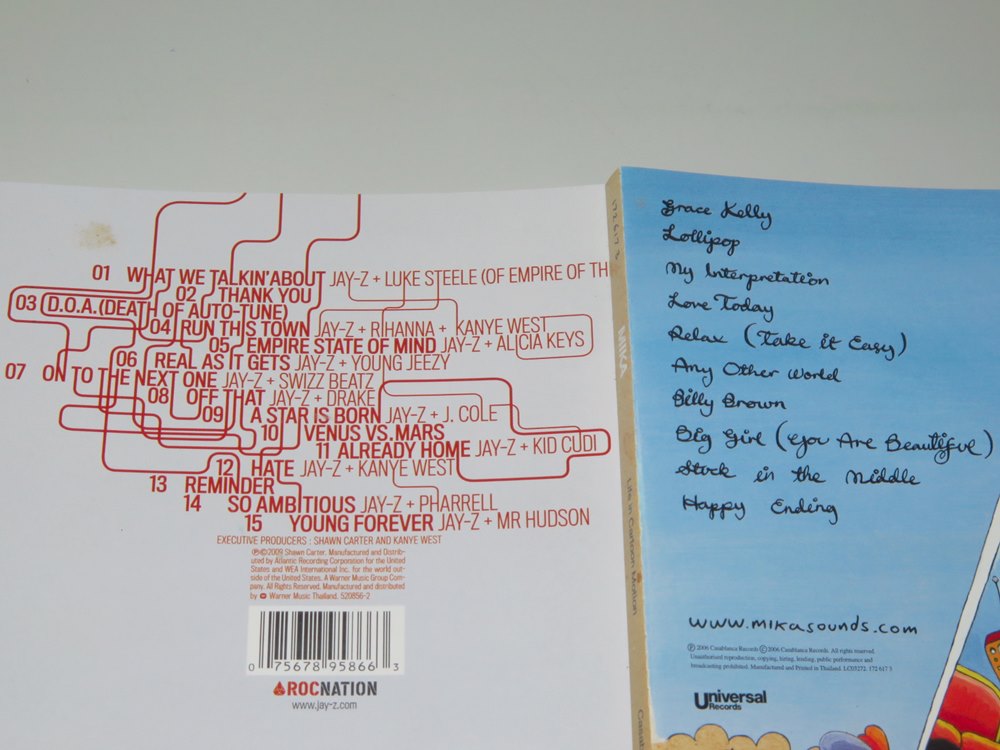 01 WHAT WE TALKIN' ABOUT JAY-Z + LUKE STEELE (OF EMPIRE OF TH
02 THANK YOU
03 D.O.A. (DEATH OF AUTO-TUNE)
04 RUN THIS TOWN JAY-Z + RIHANNA + KANYE WEST
05 EMPIRE STATE OF MIND JAY-Z + ALICIA KEYS
06 REAL AS IT GETS JAY-Z + YOUNG JEEZY
07 ON TO THE NEXT ONE JAY-Z + SWIZZ BEATZ
08 OFF THAT JAY-Z + DRAKE
09 A STAR IS BORN JAY-Z + J. COLE
10 VENUS VS. MARS
11 ALREADY HOME JAY-Z + KID CUDI
12 HATE JAY-Z + KANYE WEST
13 REMINDER
14 SO AMBITIOUS JAY-Z + PHARRELL
15 YOUNG FOREVER JAY-Z + MR HUDSON
EXECUTIVE PRODUCERS : SHAWN CARTER AND KANYE WEST
℗©2009 Shawn Carter. Manufactured and Distrib-
uted by Atlantic Recording Corporation for the United
States and WEA International Inc. for the world out-
side of the United States. A Warner Music Group Com-
pany. All Rights Reserved. Manufactured and distributed
by Warner Music Thailand. 520856-2
0 75678 95866 3
ROCNATION
www.jay-z.com
172 617 3
MIKA
Life in Cartoon Motion
Grace Kelly
Lollipop
My Interpretation
Love Today
Relax (Take it Easy)
Any Other World
Billy Brown
Big Girl (You Are Beautiful)
Stuck in the Middle
Happy Ending
www.mikasounds.com
℗ 2006 Casablanca Records © 2006 Casablanca Records. All rights reserved.
Unauthorised reproduction, copying, hiring, lending, public performance and
broadcasting prohibited. Manufactured and Printed in Thailand. LC03272. 172 617 3
Universal
Records